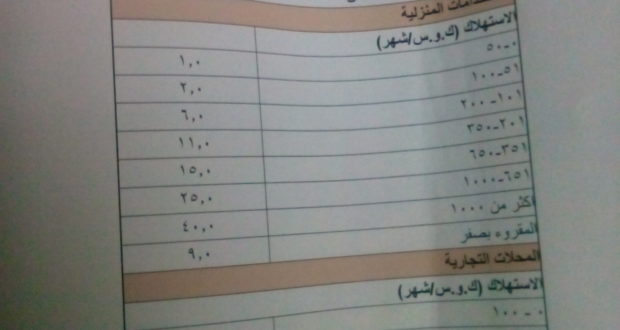 المنزلية
الاستهلاك (ك.و.س/شهر)
٠-٥٠ ١,٠
٥١-١٠٠ ٢,٠
١٠١-٢٠٠ ٦,٠
٢٠١-٣٥٠ ١١,٠
٣٥١-٦٥٠ ١٥,٠
٦٥١-١٠٠٠ ٢٥,٠
أكثر من ١٠٠٠ ٤٠,٠
المقروء بصفر ٩,٠
المحلات التجارية
الاستهلاك (ك.و.س/شهر)
٠ - ١٠٠